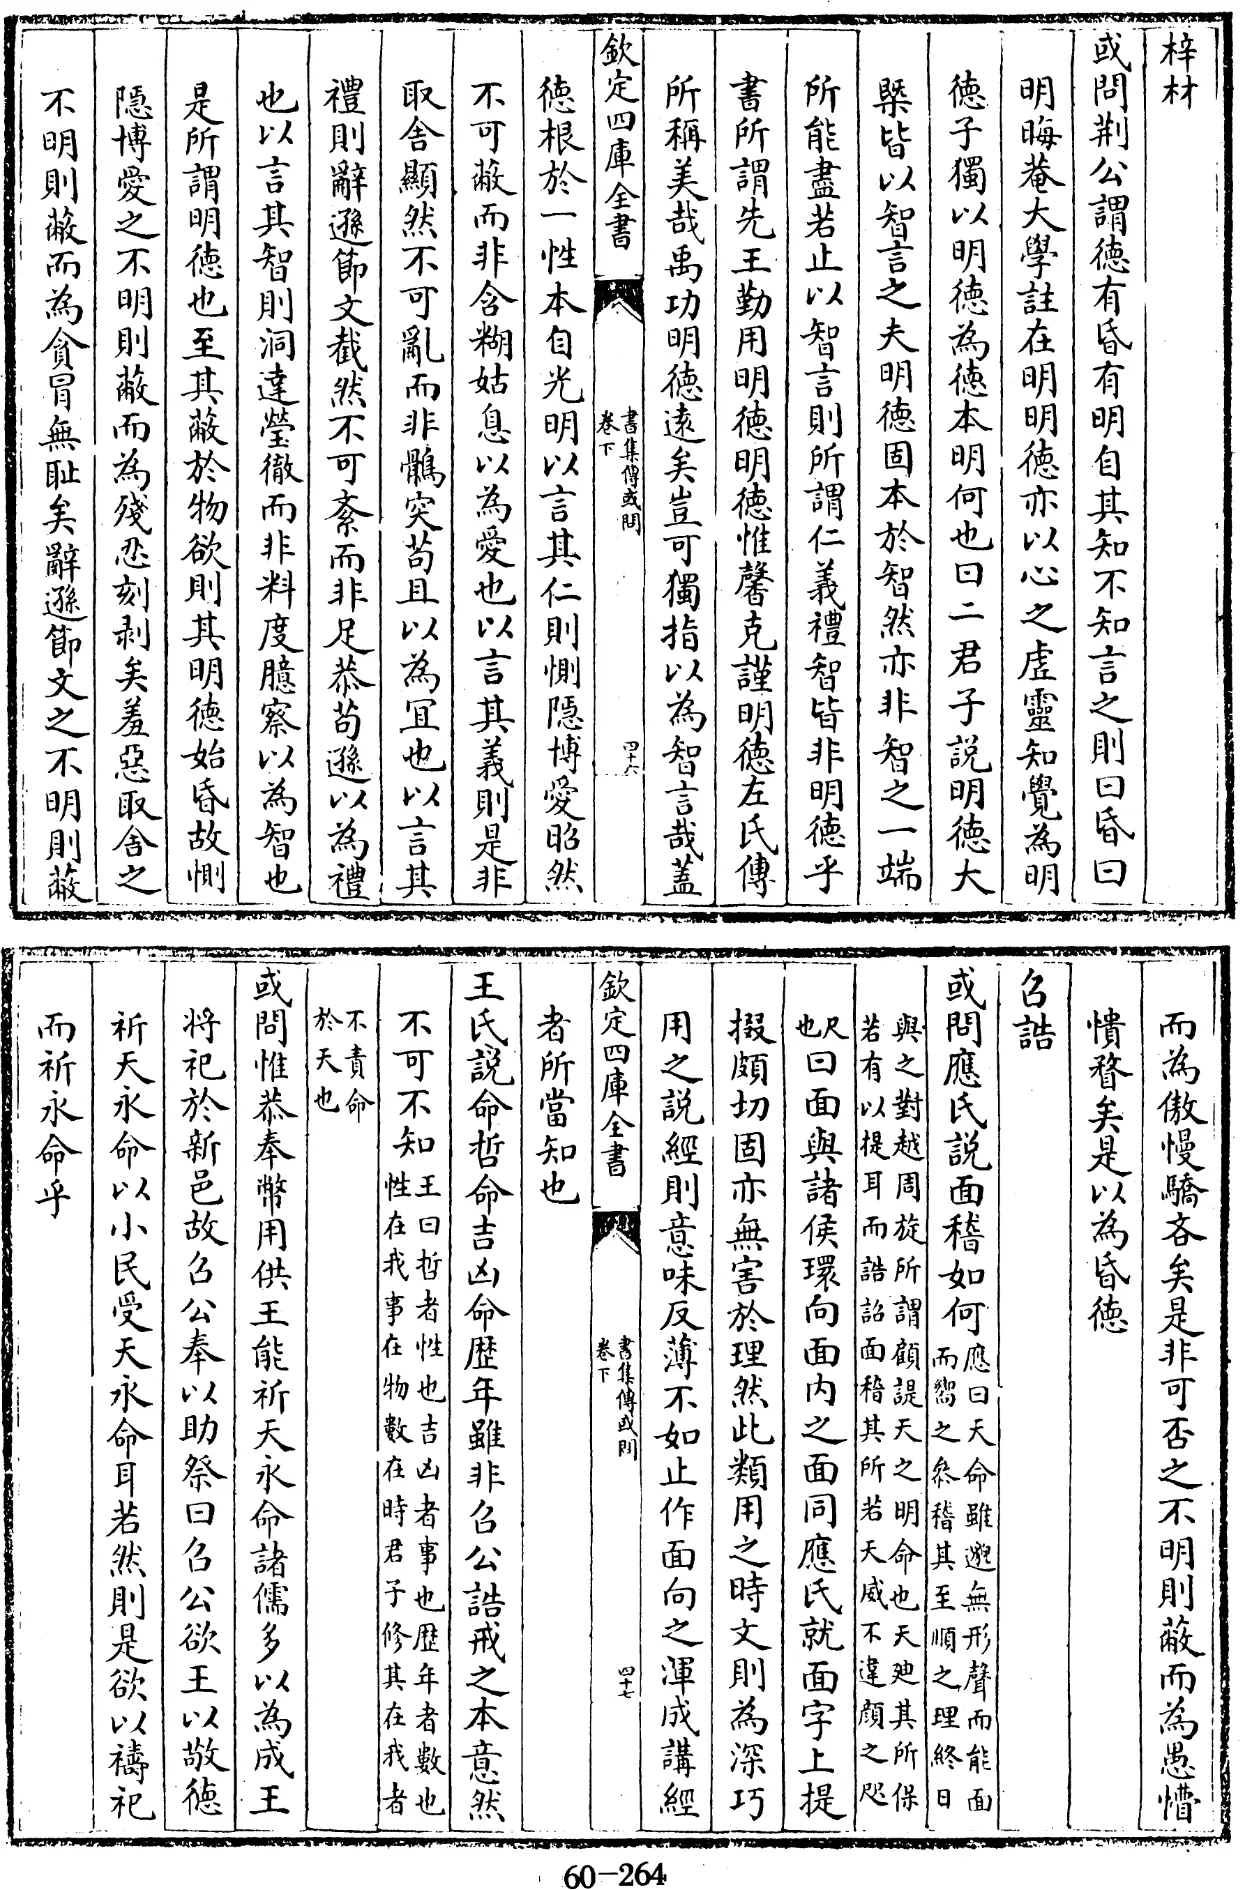 梓材
或問荆公謂徳有昏有明自其知不知言之則曰昏曰
明晦菴大學註在明明徳亦以心之虚靈知覺為明
徳子獨以明徳為徳本明何也曰二君子説明徳大
槩皆以智言之夫明徳固本於智然亦非智之一端
所能盡若止以智言則所謂仁義禮智皆非明徳乎
書所謂先王勤用明徳明徳惟馨克謹明徳左氏傳
所稱美哉禹功明徳逺矣豈可獨指以為智言哉蓋
欽定四庫全書
書集傳或問
卷下
四十六
徳根於一性本自光明以言其仁則惻隠博愛昭然
不可蔽而非含糊姑息以為愛也以言其義則是非
取舍顯然不可亂而非鶻突茍且以為宜也以言其
禮則辭遜節文截然不可紊而非足恭茍遜以為禮
也以言其智則洞達瑩徹而非料度臆察以為智也
是所謂明徳也至其蔽於物欲則其明徳始昏故惻
隠博愛之不明則蔽而為殘忍刻剥矣羞惡取舍之
不明則蔽而為貪冒無耻矣辭遜節文之不明則蔽
而為傲慢驕吝矣是非可否之不明則蔽而為愚懵
憒瞀矣是以為昏徳
召誥
或問應氏説面稽如何
應曰天命雖邈無形聲而能面
而嚮之叅稽其至順之理終日
與之對越周旋所謂顧諟天之明命也天廸其所保
若有以提耳而誥詔面稽其所若天威不違顔之咫
尺
也
曰面與諸侯環向面内之面同應氏就面字上提
掇頗切固亦無害於理然此類用之時文則為深巧
用之説經則意味反薄不如止作面向之渾成講經
欽定四庫全書
書集傳或問
卷下
四十七
者所當知也
王氏説命哲命吉凶命歴年雖非召公誥戒之本意然
不可不知
王曰哲者性也吉凶者事也歴年者數也
性在我事在物數在時君子修其在我者
不責命
於天也
或問惟恭奉幣用供王能祈天永命諸儒多以為成王
將祀於新邑故召公奉以助祭曰召公欲王以敬徳
祈天永命以小民受天永命耳若然則是欲以禱祀
而祈永命乎
60-264